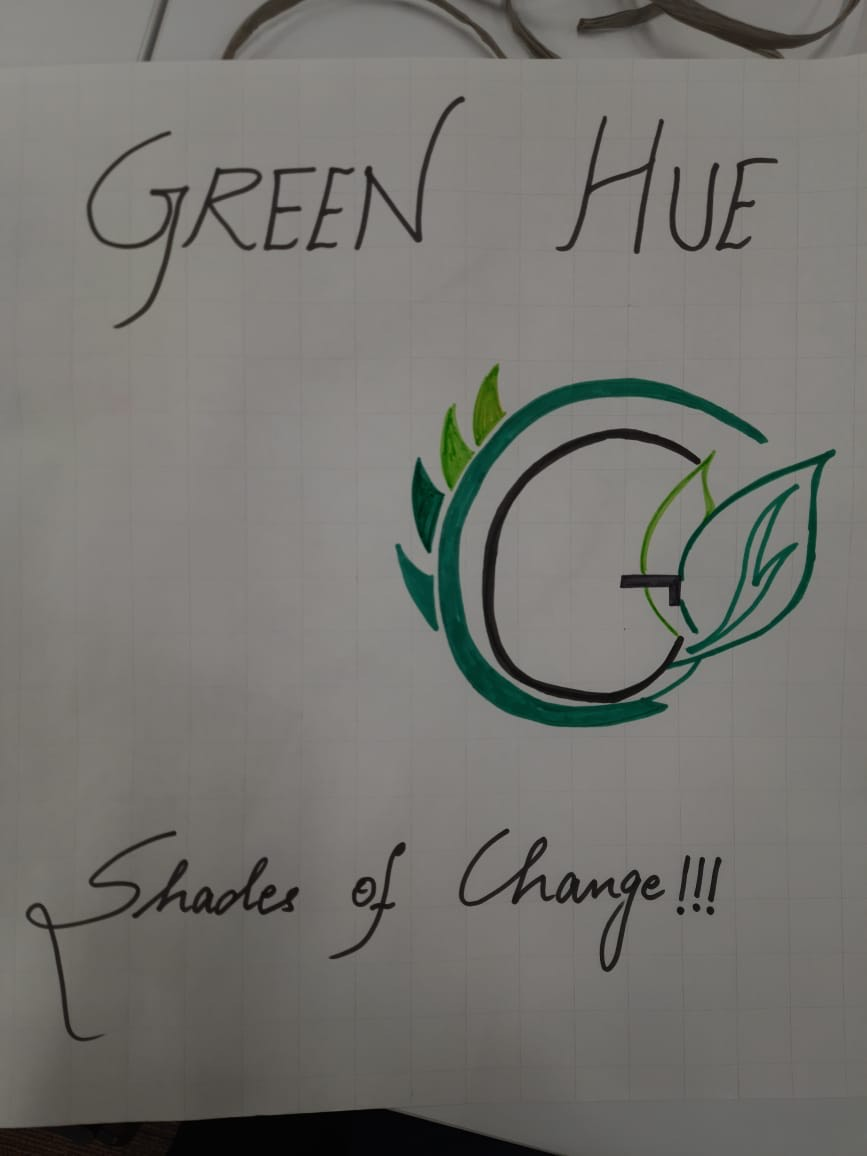 GREEN HUE
G
Shades of Change!!!